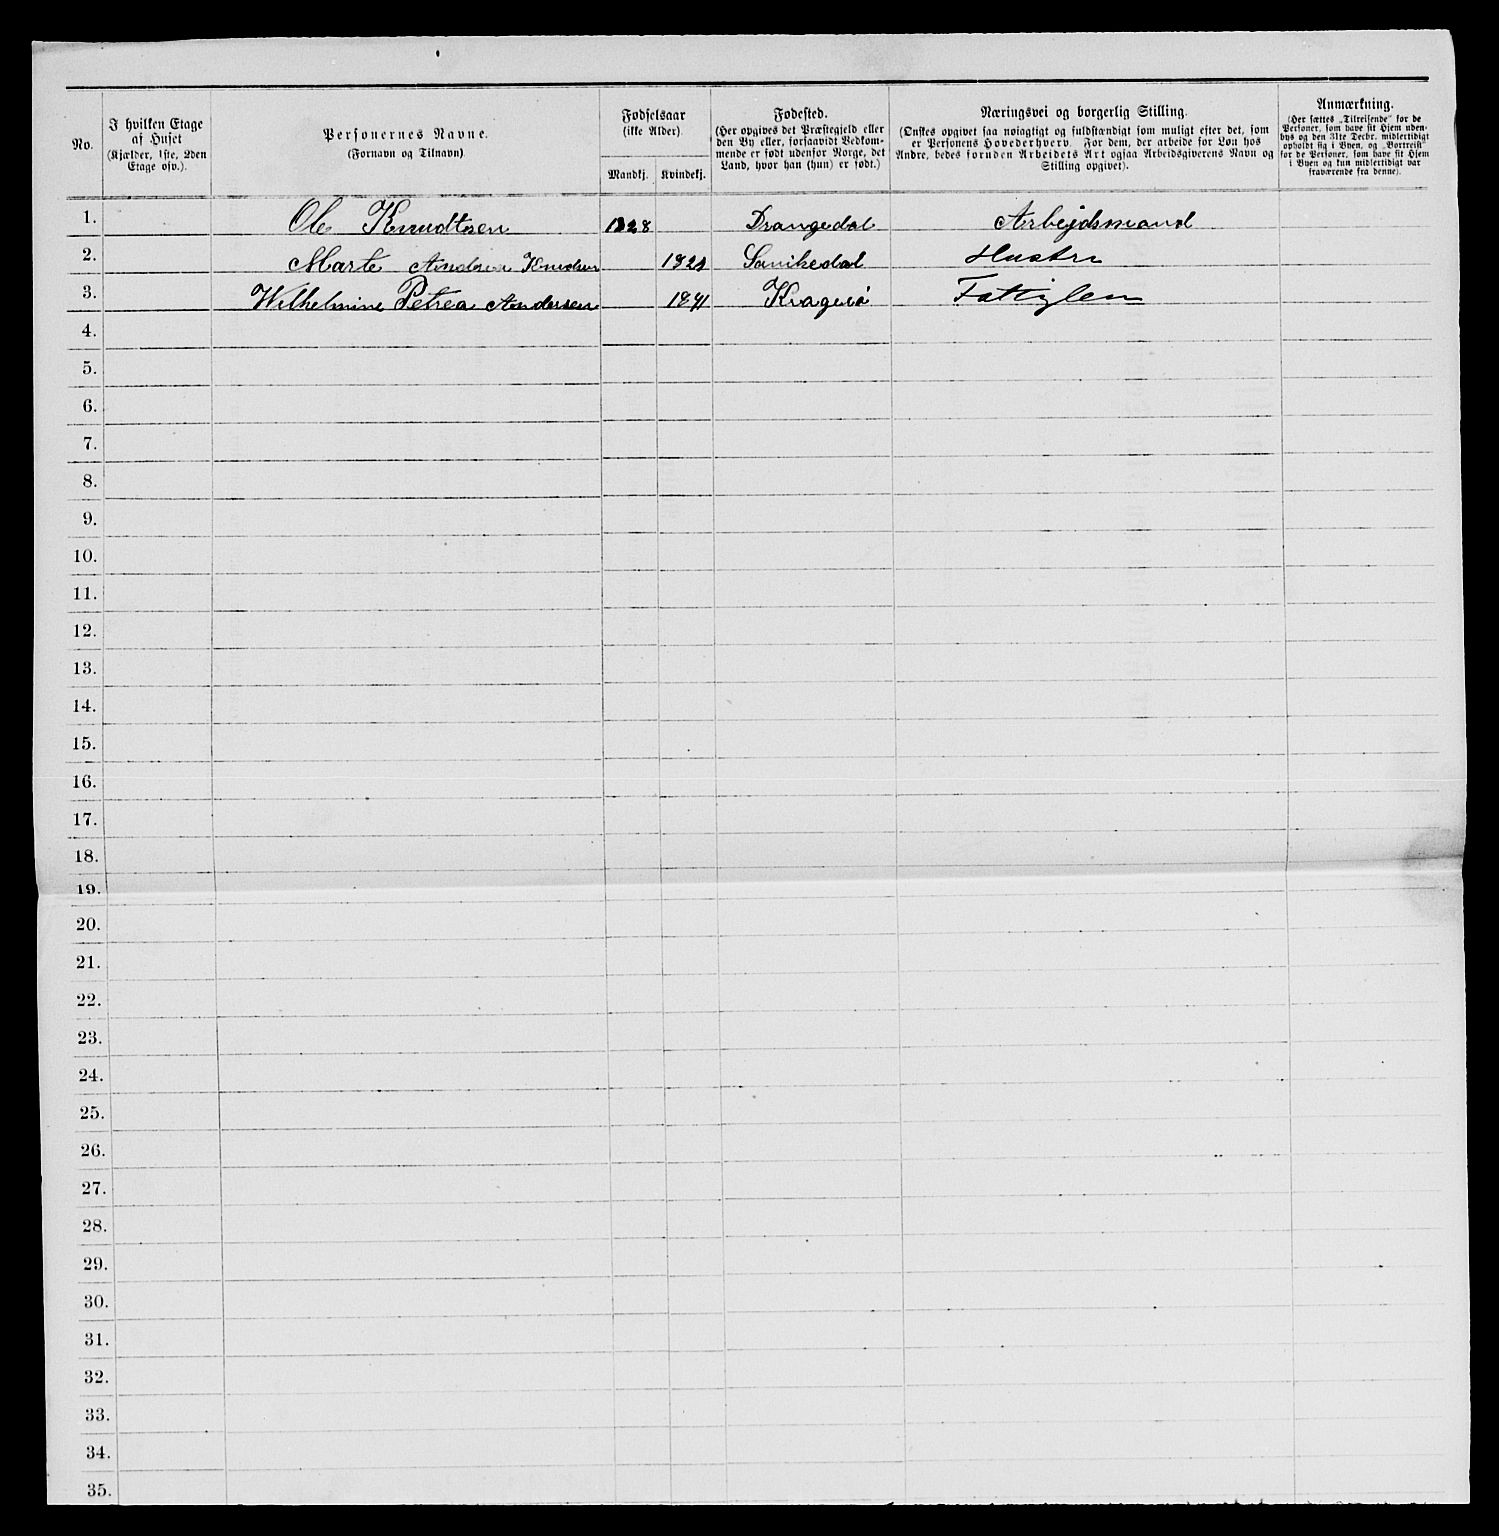 No.
I hvilken Etage af Huset (Kjælder, 1ste, 2den Etage osv.).
Personernes Navne. (Fornavn og Tilnavn)
Fødselsaar (ikke Alder).
Mandkj. Kvindekj.
Fødested. (Her opgives det Præstegjeld eller den By eller, forsaavidt Vedkommende er født udenfor Norge, det Land, hvor han (hun) er født.)
Næringsvei og borgerlig Stilling. (Ønskes opgivet saa nøiagtigt og fuldstændigt som muligt efter det, som er Personens Hovederhverv. For dem, der arbeide for Løn hos Andre, bedes foruden Arbeidets Art ogsaa Arbeidsgiverens Navn og Stilling opgivet).
Anmærkning. (Her sættes „Tilreisende“ for de Personer, som have sit Hjem udenbys og den 31te Decbr. midlertidigt opholdt sig i Byen, og „Bortreist“ for de Personer, som have sit Hjem i Byen og kun midlertidigt var fraværende fra denne).
1. Ole Knudtsen 1828 Drangedal Arbejdsmand
2. Marte Andrea Knudsen Sanikedal Hustru
3. Wilhelmine Petrea Andersen Kragerö Fattiglem
4.
5.
6.
7.
8.
9.
10.
11.
12.
13.
14.
15.
16.
17.
18.
19.
20.
21.
22.
23.
24.
25.
26.
27.
28.
29.
30.
31.
32.
33.
34.
35.